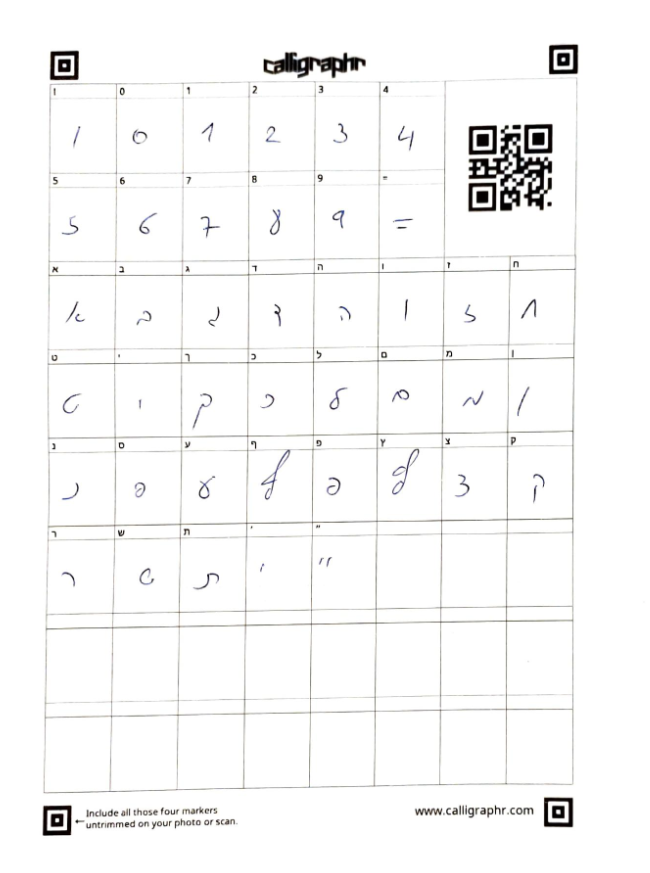 calligraphr
| 0 1 2 3 4
/ 0 1 2 3 4
5 6 7 8 9 =
5 6 7 8 9 =
א ב ג ד ה ו ז ח
א ב ג ד ה ו ז ח
ט י ך כ ל ם מ ן
ט י ך כ ל ם מ ן
נ ס ע ף פ ץ צ ק
נ ס ע ף פ ץ צ ק
ר ש ת ' "
ר ש ת ' "
Include all those four markers
← untrimmed on your photo or scan.
www.calligraphr.com